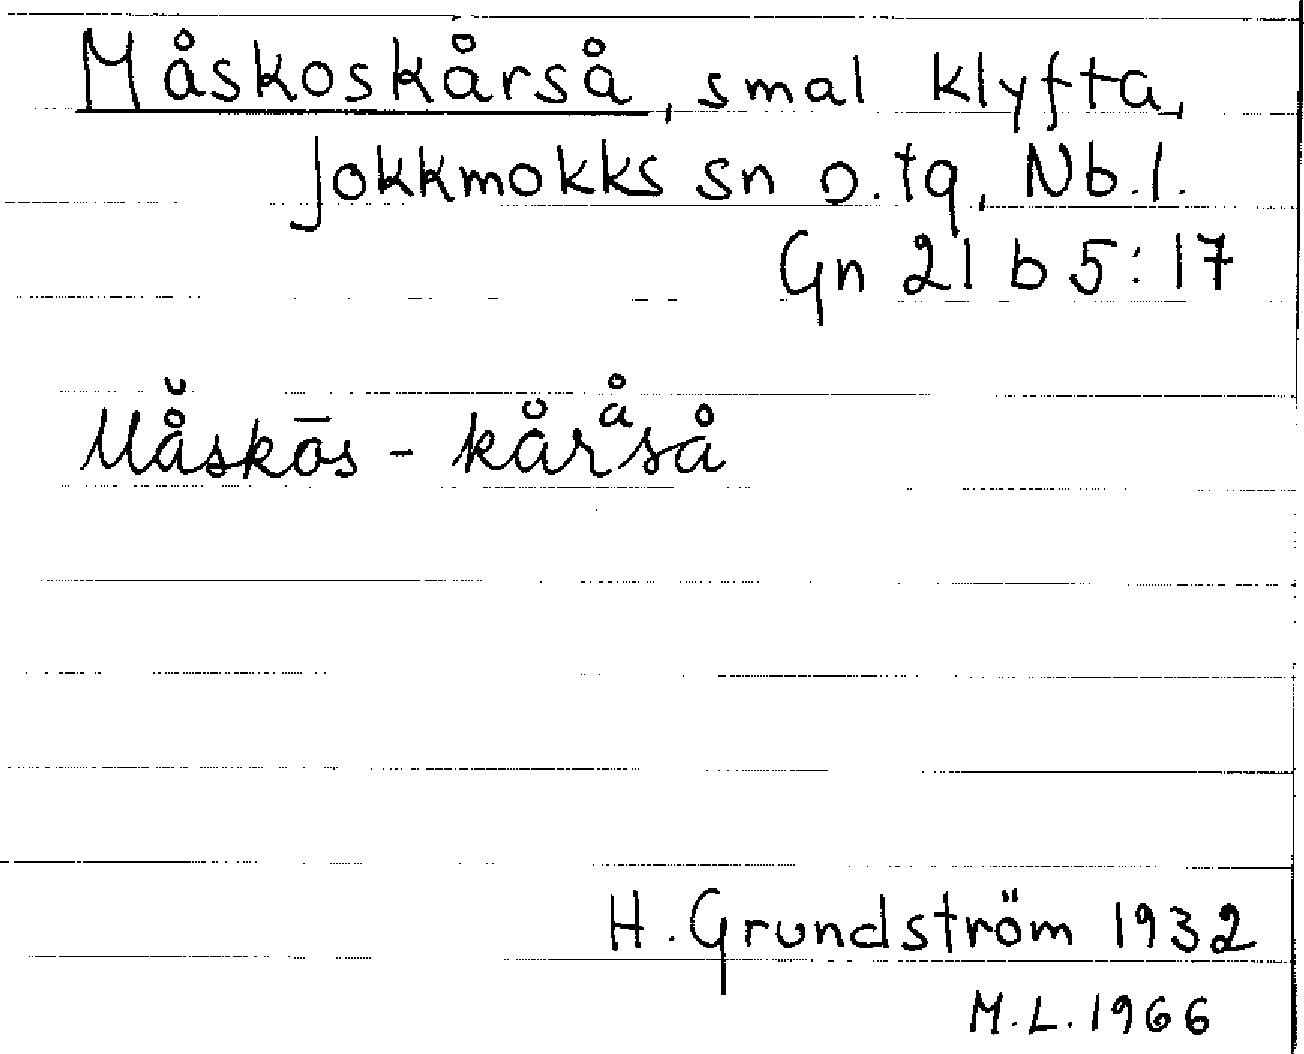 Måskoskårså, smal klyfta,
Jokkmokks sn o. tg, Nb. l.
Gn 21 b 5:17
Må̆skōs - kårᵃ̊så
H. Grundström 1932
M.L. 1966